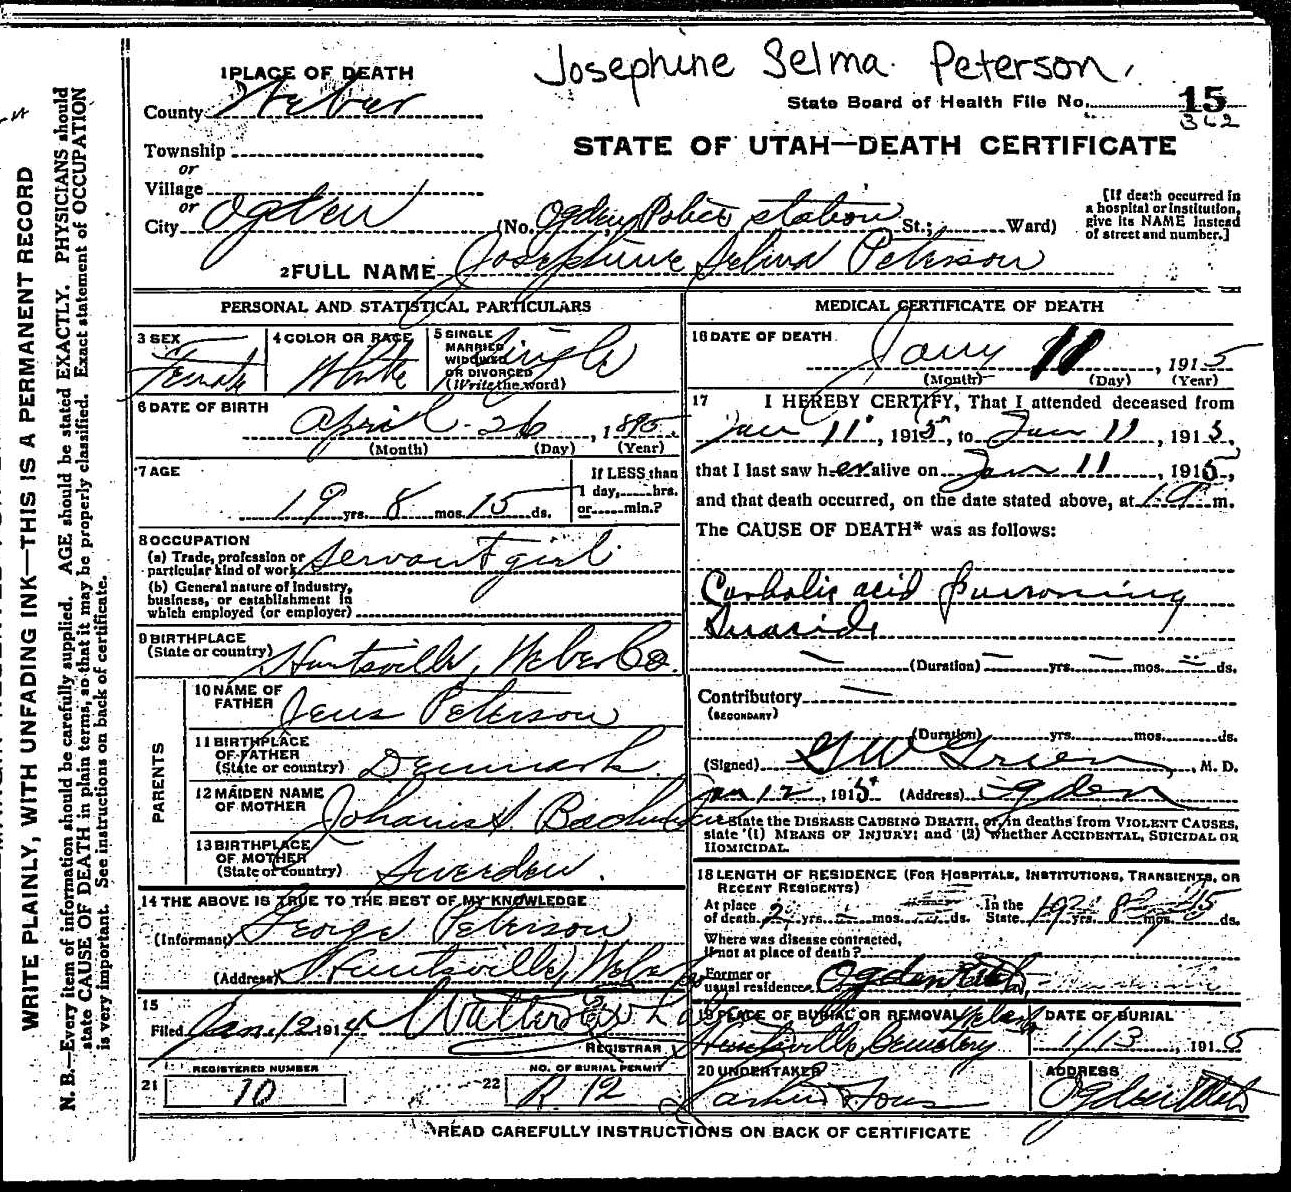 Josephine Selma Peterson
1 PLACE OF DEATH
State Board of Health File No. 15
362
County Weber
STATE OF UTAH—DEATH CERTIFICATE
Township
or
Village
or
City Ogden (No. Ogden Police station St.; Ward)
[If death occurred in
a hospital or institution,
give its NAME instead
of street and number.]
2 FULL NAME Josephine Selma Peterson
PERSONAL AND STATISTICAL PARTICULARS
3 SEX Female
4 COLOR OR RACE White
5 SINGLE
MARRIED
WIDOWED
OR DIVORCED
(Write the word) Single
6 DATE OF BIRTH
April 26, 1895
(Month) (Day) (Year)
7 AGE
19 yrs. 8 mos. 15 ds.
If LESS than
1 day, hrs.
or min.?
8 OCCUPATION
(a) Trade, profession or
particular kind of work Servant girl
(b) General nature of industry,
business, or establishment in
which employed (or employer)
9 BIRTHPLACE
(State or country) Huntsville, Weber Co.
PARENTS
10 NAME OF
FATHER Jens Peterson
11 BIRTHPLACE
OF FATHER
(State or country) Denmark
12 MAIDEN NAME
OF MOTHER
13 BIRTHPLACE
OF MOTHER
(State or country) Sweeden.
14 THE ABOVE IS TRUE TO THE BEST OF MY KNOWLEDGE
(Informant) George Peterson
(Address) Huntsville, Weber
15
Filed Jan. 12 1914 Walter
REGISTRAR
REGISTERED NUMBER
21 10
NO. OF BURIAL PERMIT
22 R 12
MEDICAL CERTIFICATE OF DEATH
16 DATE OF DEATH
Jany 11, 1915
(Month) (Day) (Year)
17 I HEREBY CERTIFY, That I attended deceased from
Jan 11, 1915, to Jan 11, 1915,
that I last saw her alive on Jan 11, 1915,
and that death occurred, on the date stated above, at m.
The CAUSE OF DEATH* was as follows:
Carbolic acid
(Duration) yrs. mos. ds.
Contributory
(SECONDARY)
(Duration) yrs. mos. ds.
(Signed) G W Green, M. D.
Jan 12, 1915 (Address) Ogden
State the DISEASE CAUSING DEATH, or, in deaths from VIOLENT CAUSES,
state (1) MEANS OF INJURY; and (2) whether ACCIDENTAL, SUICIDAL OR
HOMICIDAL.
18 LENGTH OF RESIDENCE (FOR HOSPITALS, INSTITUTIONS, TRANSIENTS, OR
RECENT RESIDENTS)
At place
of death 2 yrs. mos. ds. In the
State 19 yrs. 8 mos. 15 ds.
Where was disease contracted,
if not at place of death?
Former or
usual residence Ogden Utah
19 PLACE OF BURIAL OR REMOVAL
Huntsville Cemetery
DATE OF BURIAL
1/13, 1915
20 UNDERTAKER
ADDRESS
Ogden Utah
READ CAREFULLY INSTRUCTIONS ON BACK OF CERTIFICATE
WRITE PLAINLY, WITH UNFADING INK—THIS IS A PERMANENT RECORD
N. B.—Every item of information should be carefully supplied. AGE should be stated EXACTLY. PHYSICIANS should
state CAUSE OF DEATH in plain terms, so that it may be properly classified. Exact statement of OCCUPATION
is very important. See instructions on back of certificate.